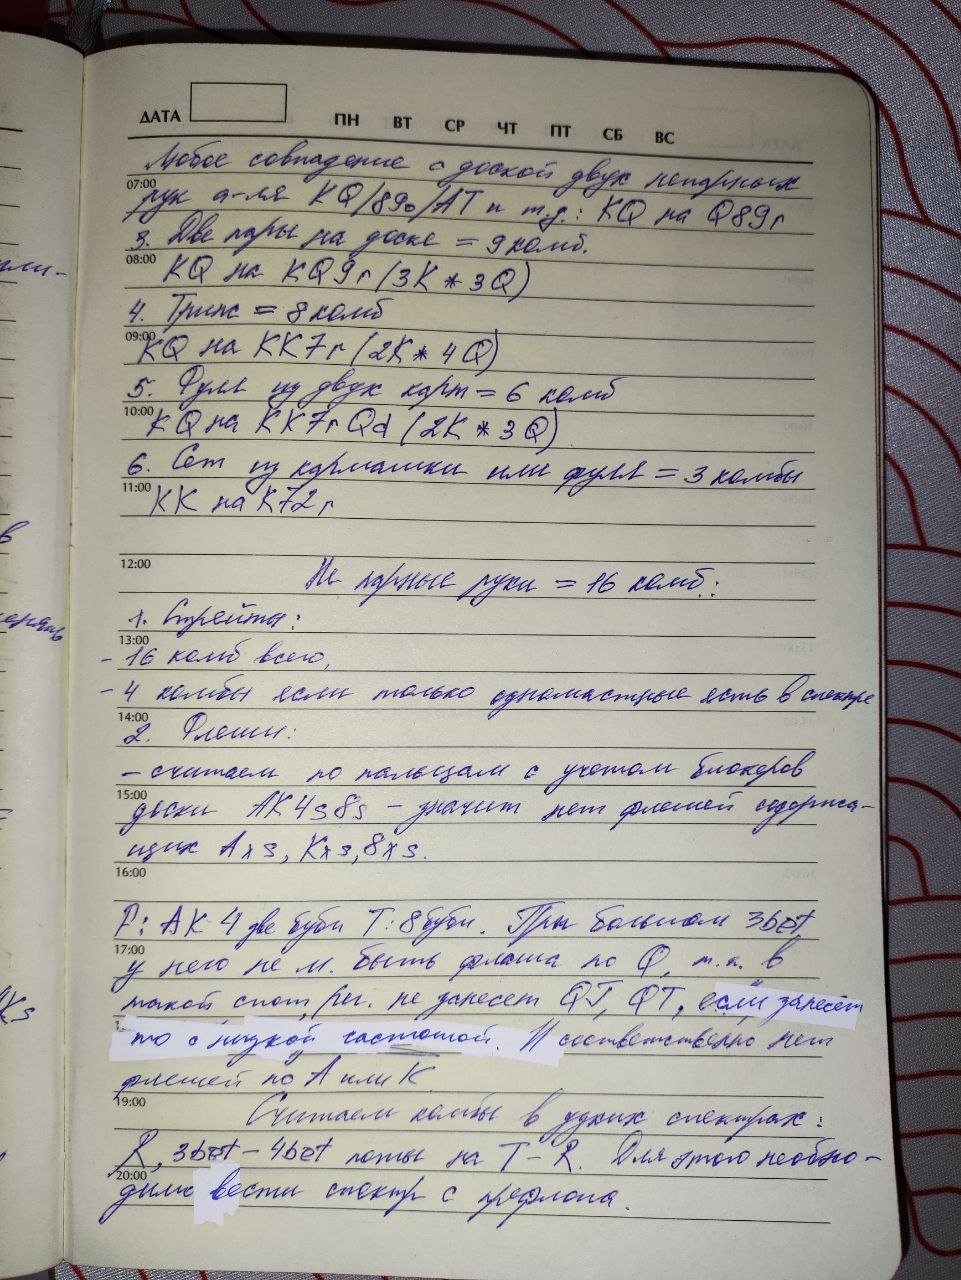 ДАТА ПН ВТ СР ЧТ ПТ СБ ВС
Любое совпадение с доской двух непарных
07:00
рук а-ля KQ/89o/AT и т.д.: KQ на Q89r
3. Две пары на доске = 9 комб.
08:00
KQ на KQ9r (3K * 3Q)
4. Трипс = 8 комб
09:00
KQ на KK7r (2K * 4Q)
5. Фулл из двух карт = 6 комб
10:00
KQ на KK7r Qd (2K * 3Q)
6. Сет из карманки или фулл = 3 комбы
11:00
KK на K72r
12:00
Не парные руки = 16 комб.:
1. Стрейты:
13:00
- 16 комб всего,
- 4 комбы если только одномастные есть в спектре
14:00
2. Флеши:
- считаем по пальцам с учетом блокеров
15:00
доски AK4s8s - значит нет флешей содержа-
щих Axs, Kxs, 8xs.
16:00
F: AK4 две буби T: 8 буби. При большом 3bet
17:00
у него не м. быть флеша по Q, т.к. в
такой спот, рег. не занесет QJ, QT, если занесёт
то с низкой частотой. И соответственно нет
флешей по A или K.
19:00
Считаем комбы в узких спектрах:
R, 3bet - 4bet поты на T - R. Для этого необхо-
20:00
димо вести спектр с префлопа.